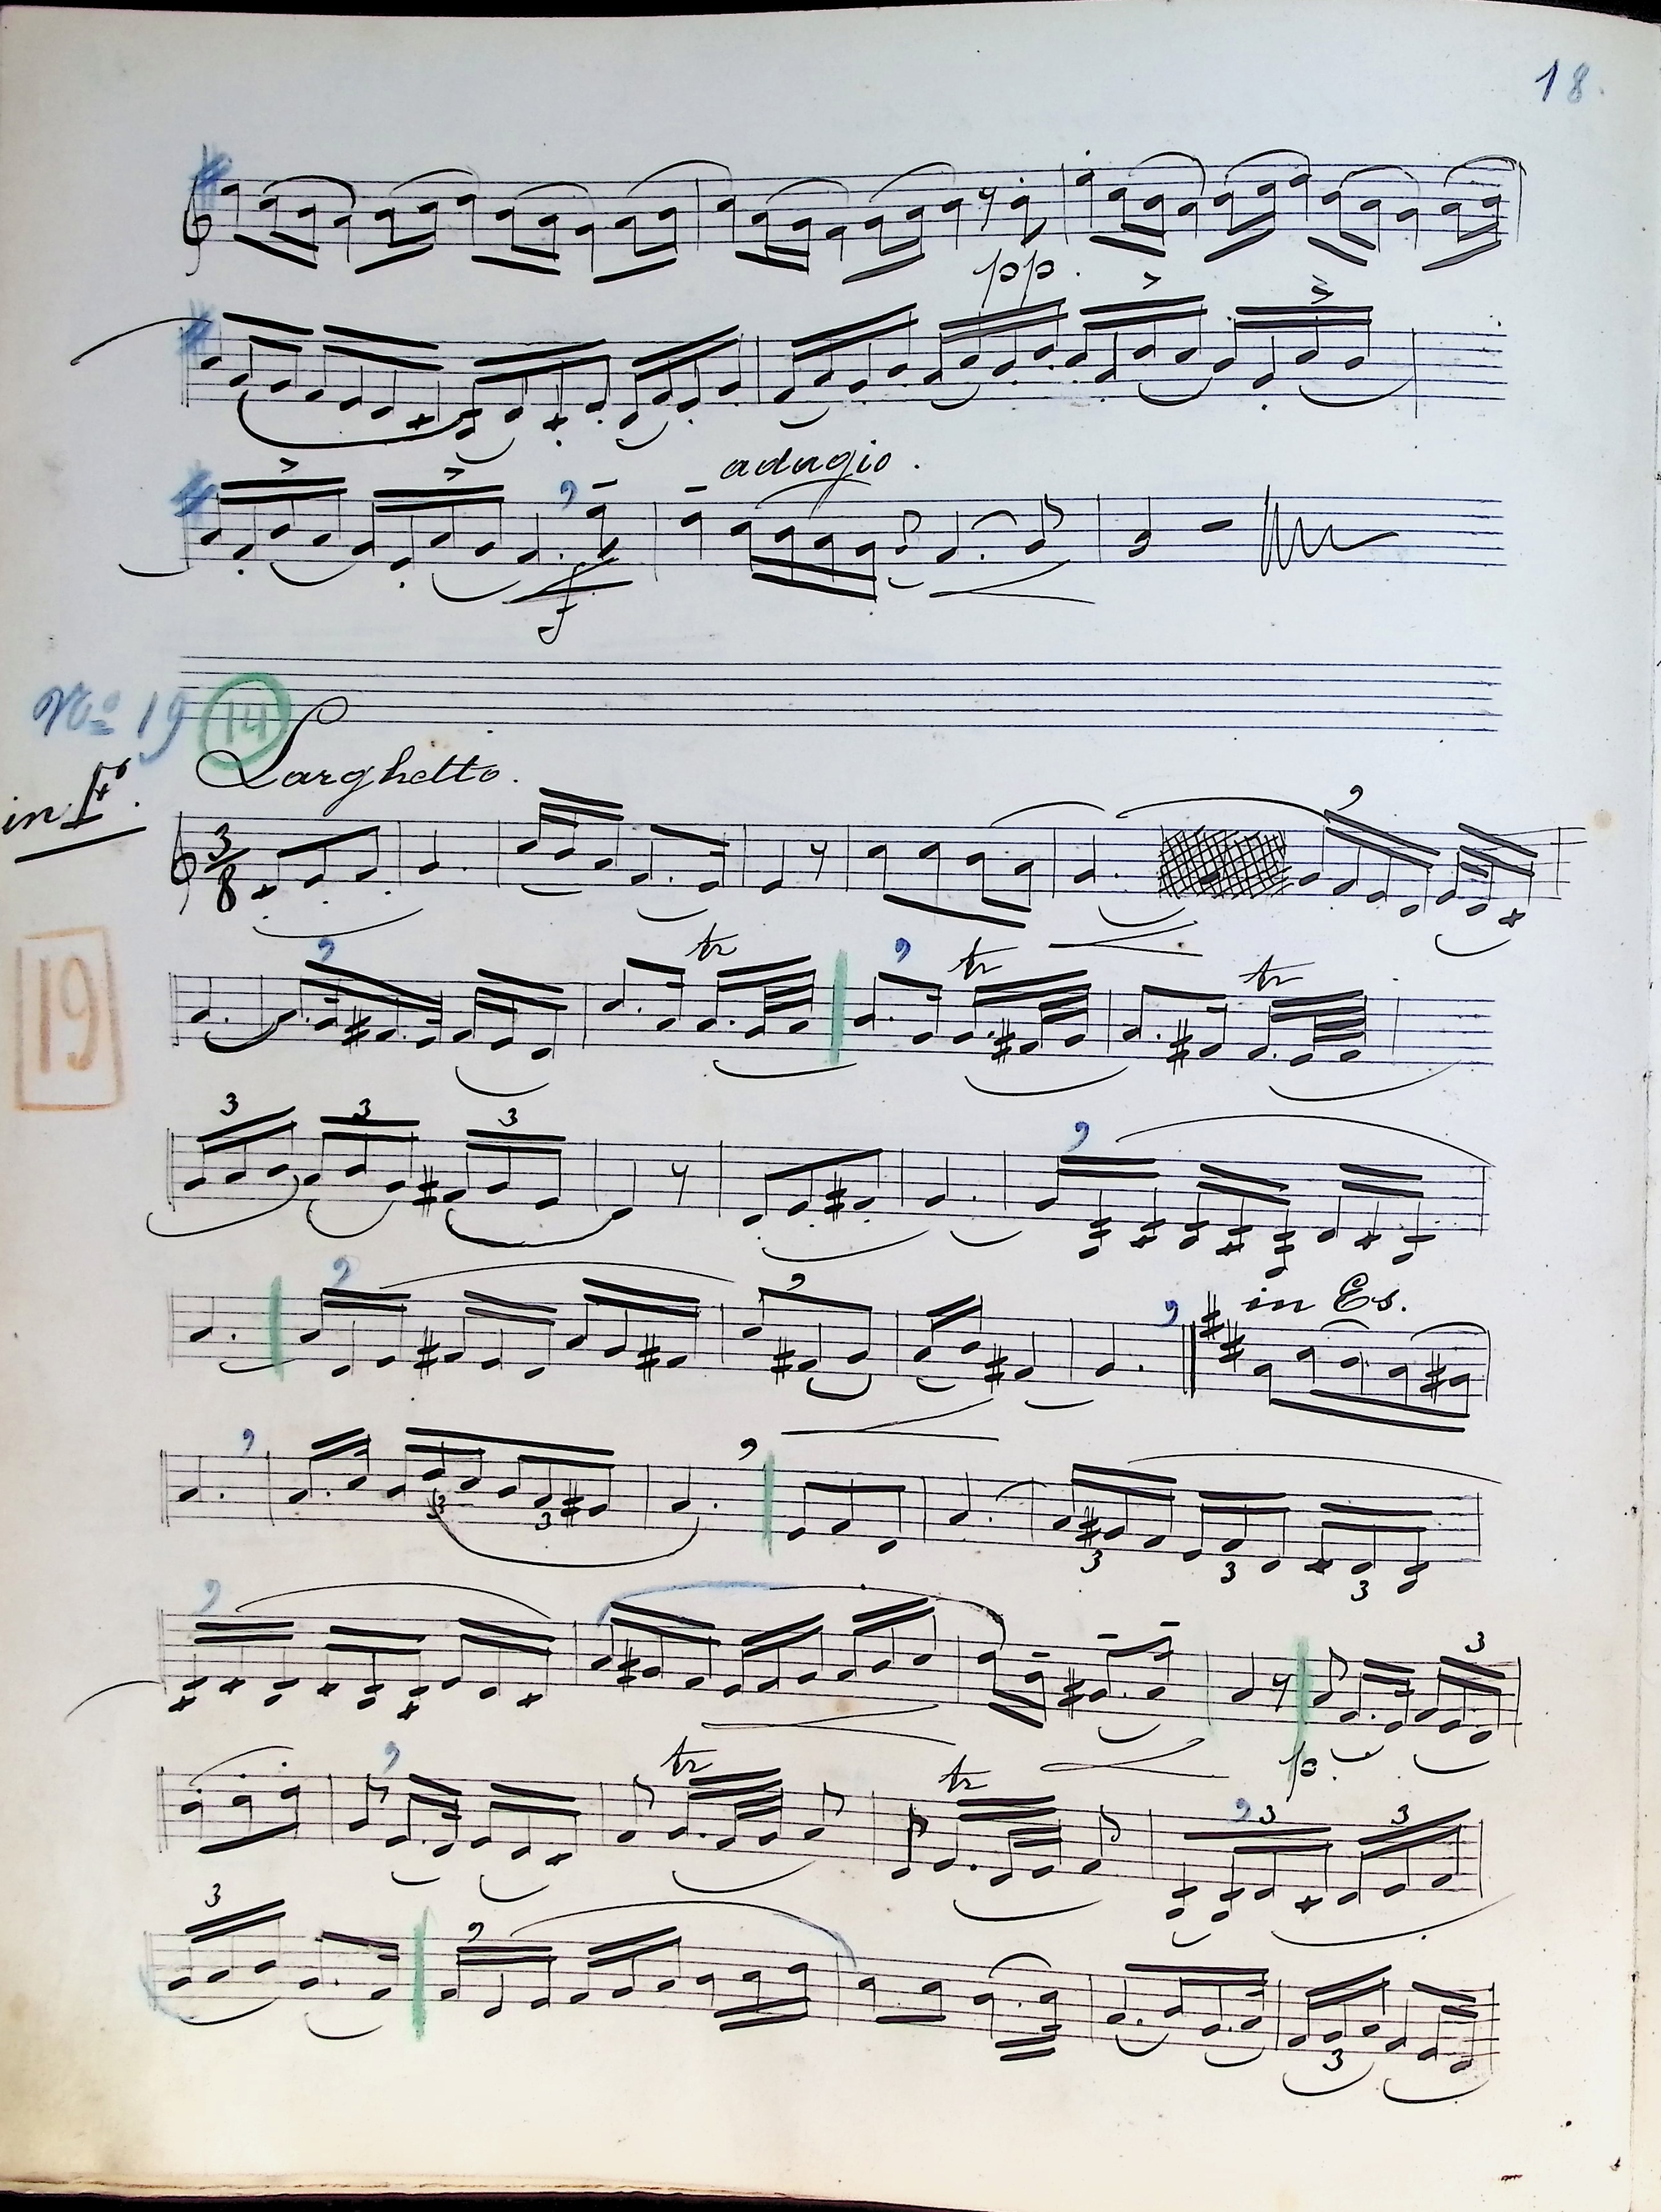 18.
pp.
adagio.
f
No 19 14
Larghetto.
in F.
3/8
tr tr tr
19
3 3 3
in Es.
3 3 3 3 3
3
p.
tr tr 3 3
3
3